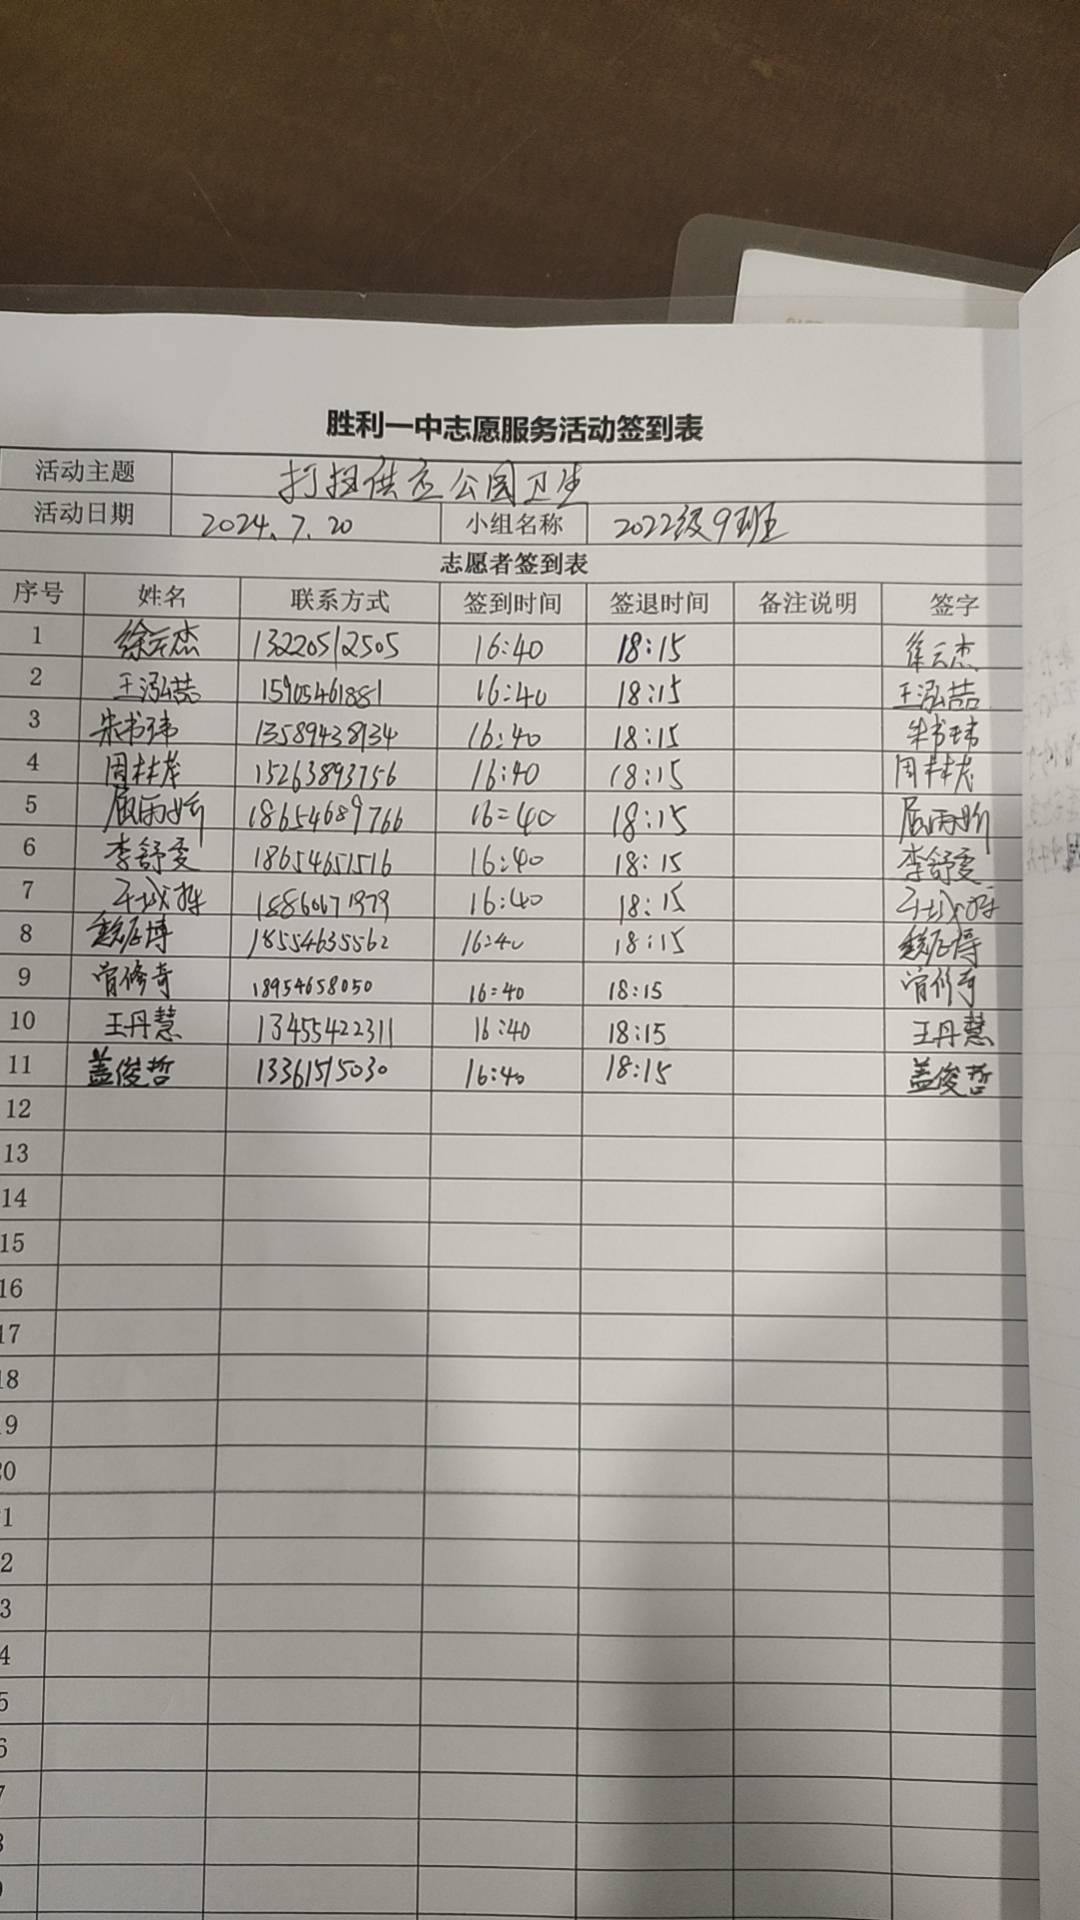 胜利一中志愿服务活动签到表
活动主题 打扫供应公园卫生
活动日期 2024.7.20 小组名称 2022级9班
志愿者签到表
序号 姓名 联系方式 签到时间 签退时间 备注说明 签字
1 徐云杰 13220512505 16:40 18:15 徐云杰
2 王泓喆 15905461881 16:40 18:15 王泓喆
3 朱书玮 13589438934 16:40 18:15 朱书玮
4 周林茂 15263893756 16:40 18:15 周林茂
5 18654689766 16:40 18:15
6 李舒雯 18654651516 16:40 18:15 李舒雯
7 18860671979 16:40 18:15
8 18554635562 16:40 18:15
9 曾修奇 18954658050 16:40 18:15 曾修奇
10 王丹慧 13455422311 16:40 18:15 王丹慧
11 盖俊哲 13361515030 16:40 18:15 盖俊哲
12
13
14
15
16
17
18
19
20
1
2
3
4
5
6
7
8
9